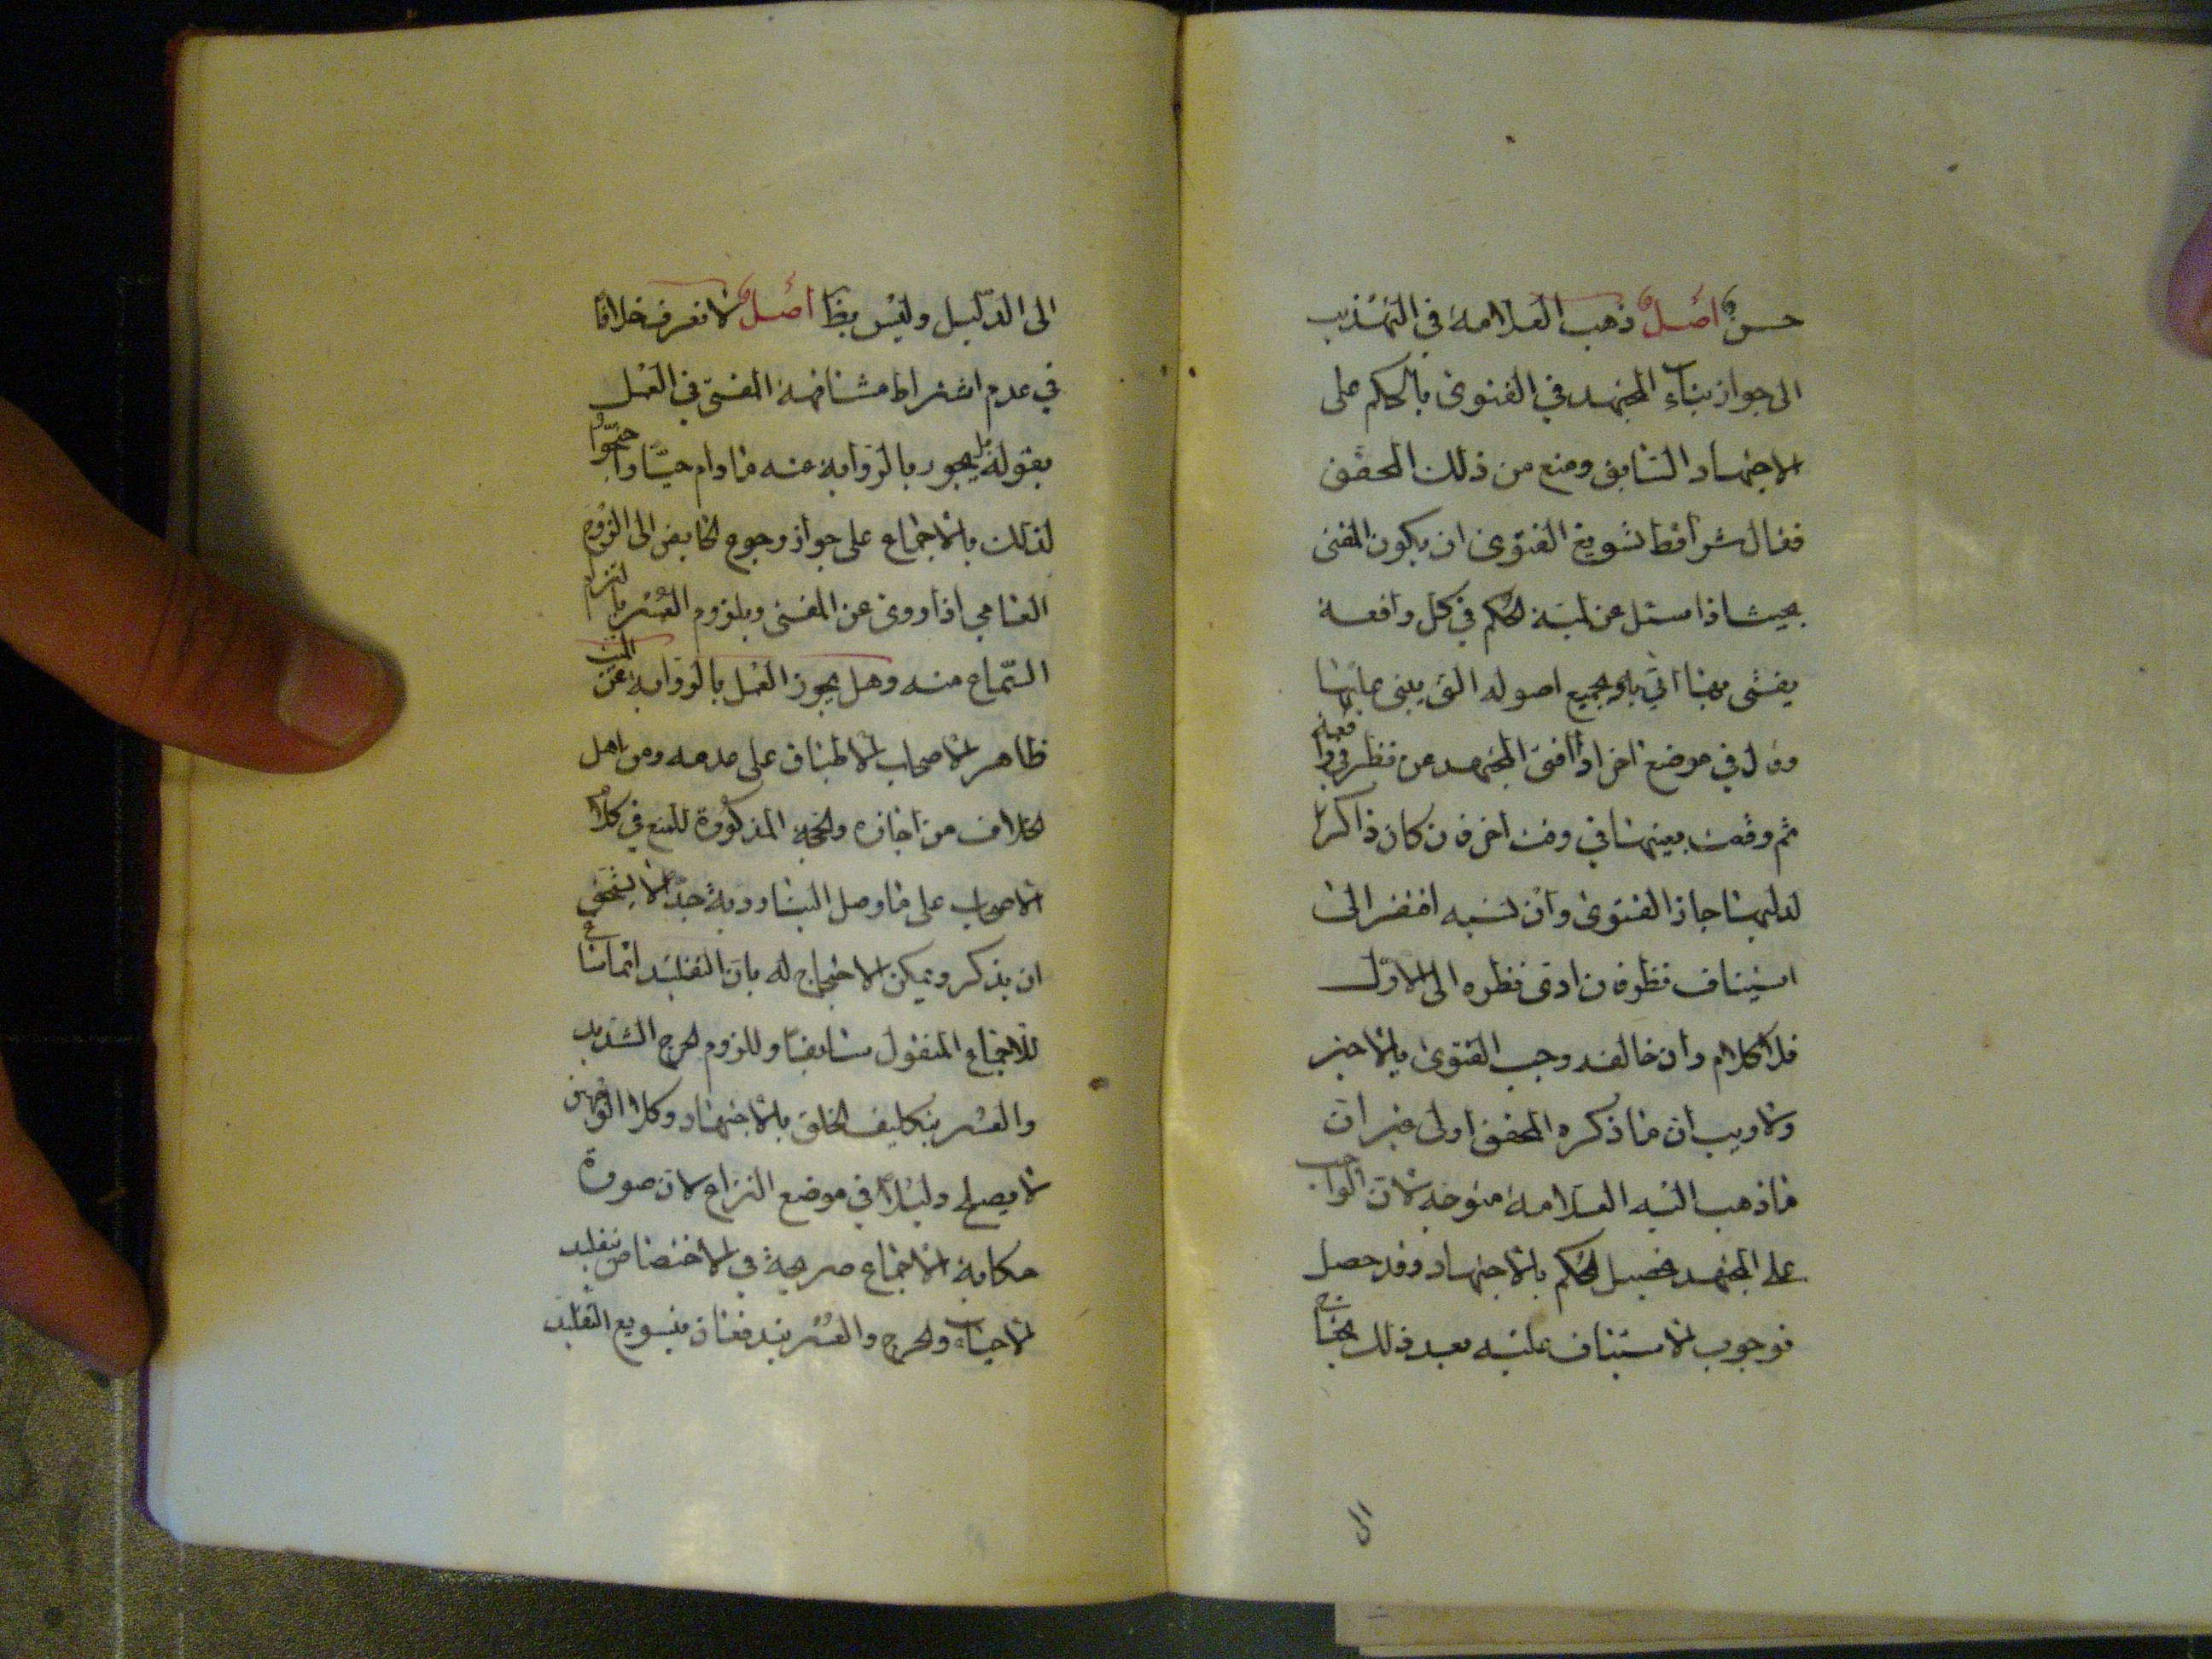 حسن اصل ذهب العلامة في التهذيب
الى جواز بناء المجتهد في الفتوى بالحكم على
الاجتهاد السابق ومنع من ذلك المحقق
فقال شرائط تسويغ الفتوى ان يكون المفتى
بحيث اذا سئل عن لمية الحكم في كل واقعة
يفتى بها اتى به وبجميع اصوله التى يبنى عليها
وقال في موضع اخر اذا افتى المجتهد عن نظر في واقعة
ثم وقعت بعينها في وقت اخر فان كان ذاكرا
لدليلها جاز الفتوى وان نسيه افتقر الى
استيناف نظر فان ادى نظره الى الاول
فلا كلام وان خالفه وجب الفتوى بالاخير
ولا ريب ان ما ذكره المحقق اولى غير ان
ما ذهب اليه العلامة متوجه لان الواجب
على المجتهد تحصيل الحكم بالاجتهاد وقد حصل
فوجوب الاستيناف عليه بعد ذلك يحتاج
الى
الى الدليل وليس بظ اصل لا نعرف خلافا
في عدم اشتراط مشافهة المفتى في العمل
بقوله بل يجوز بالرواية عنه مادام حيا واحتجوا
لذلك بالاجماع على جواز رجوع الحايض الى الزوج
العامي اذا روى عن المفتى وبلزوم العسر بالتزام
السماع منه وهل يجوز العمل بالرواية عن الميت
ظاهر الاصحاب الاطباق على عدمه ومن اهل
الخلاف من اجازه والحجة المذكورة للمنع في كلام
الاصحاب على ما وصل الينا ردية جدا لا يستحق
ان يذكر ويمكن الاحتجاج له بان التقليد انما ساغ
للاجماع المنقول سابقا وللزوم الحرج الشديد
والعسر بتكليف الخلق بالاجتهاد وكلا الوجهين
لا يصلح دليلا في موضع النزاع لان صورة
حكاية الاجماع صريحة في الاختصاص بتقليد
الاحياء والحرج والعسر يندفعان بتسويع التقليد